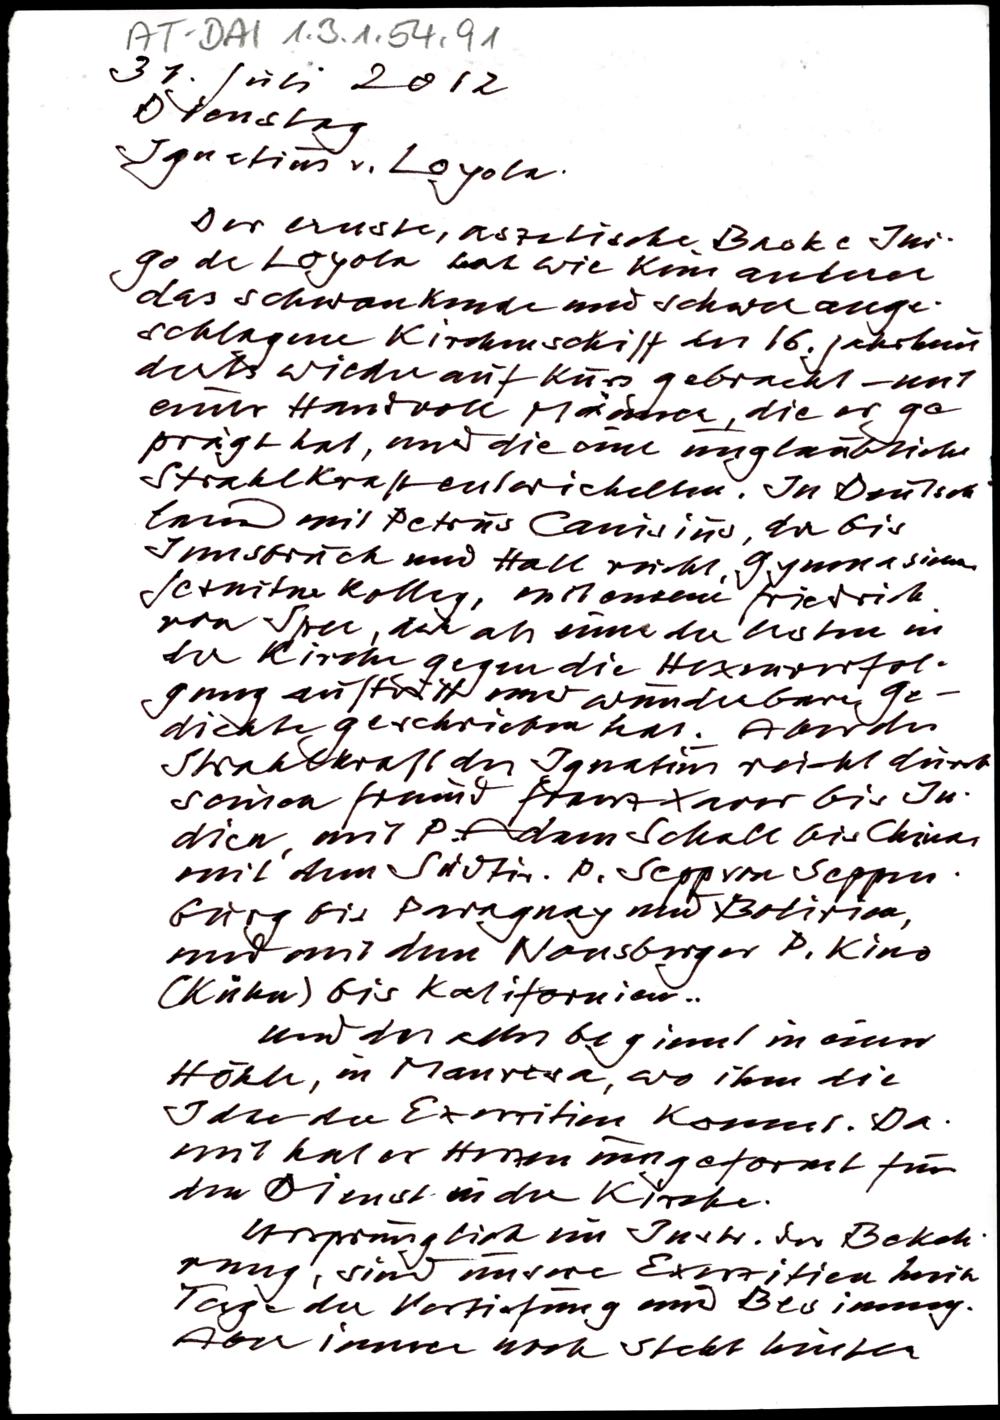 AT-DAI 1.3.1.54.91
31. Juli 2012
Dienstag
Ignatius v. Loyola.
Der ernste, aszetische Baske Ini-
go de Loyola hat wie kein anderer
das schwankende und schwer ange-
schlagene Kirchenschiff des 16. Jahrhun
derts wieder auf Kurs gebracht – mit
einer Handvoll Männer, die er ge
prägt hat, und die eine unglaubliche
Strahlkraft entwickelten. In Deutsch
land mit Petrus Canisius, der bis
Innsbruck und Hall reicht, Gymnasium
Jesuiten Kolleg, mit einem Friedrich
von Spee, der als einer der ersten in
der Kirche gegen die Hexenverfol-
gung auftritt und wunderbare Ge-
dichte geschrieben hat. Aber die
Strahlkraft des Ignatius reicht durch
seinen Freund Franz Xaver bis In-
dien, mit P. Adam Schall bis China,
mit dem Südtir. P. Sepp von Seppen-
burg bis Paraguay und Bolivien,
und mit dem Nonsberger P. Kino
(Kühn) bis Kalifornien..
Und das alles beginnt in einer
Höhle, in Manresa, wo ihm die
Idee der Exerzitien kommt. Da-
mit hat er Herzen umgeformt für
den Dienst in der Kirche.
Ursprünglich ein Instr. der Bekeh-
rung, sind unsere Exerzitien heute
Tage der Vertiefung und Besinnung.
Aber immer noch steht hinter